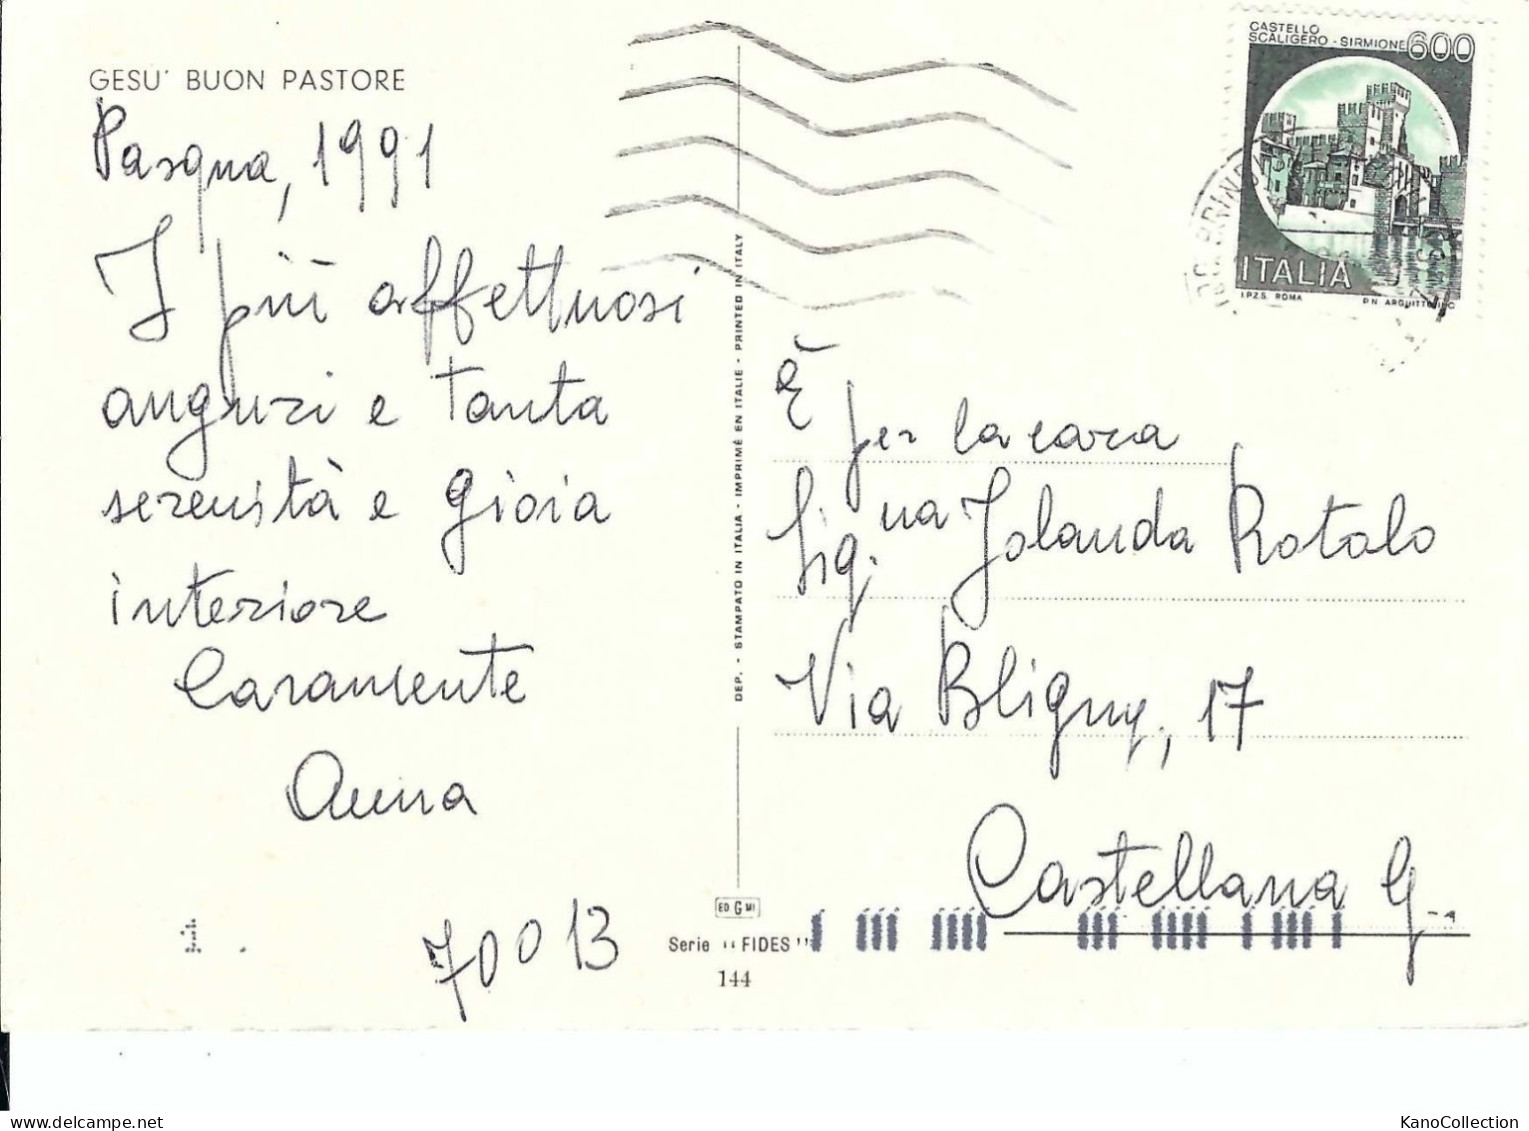 GESU' BUON PASTORE
Pasqua, 1991
I più affettuosi
auguri e tanta
serenità e gioia
interiore
Caramente
Anna
70013
1.
DEP. - STAMPATO IN ITALIA - IMPRIMÉ EN ITALIE - PRINTED IN ITALY
ED G MI
Serie "FIDES"
144
CASTELLO
SCALIGERO - SIRMIONE 600
ITALIA
I.P.Z.S. ROMA
È per la cara
Sig.na Jolanda Rotolo
Via Bligny, 17
Castellana G.
KanoCollection